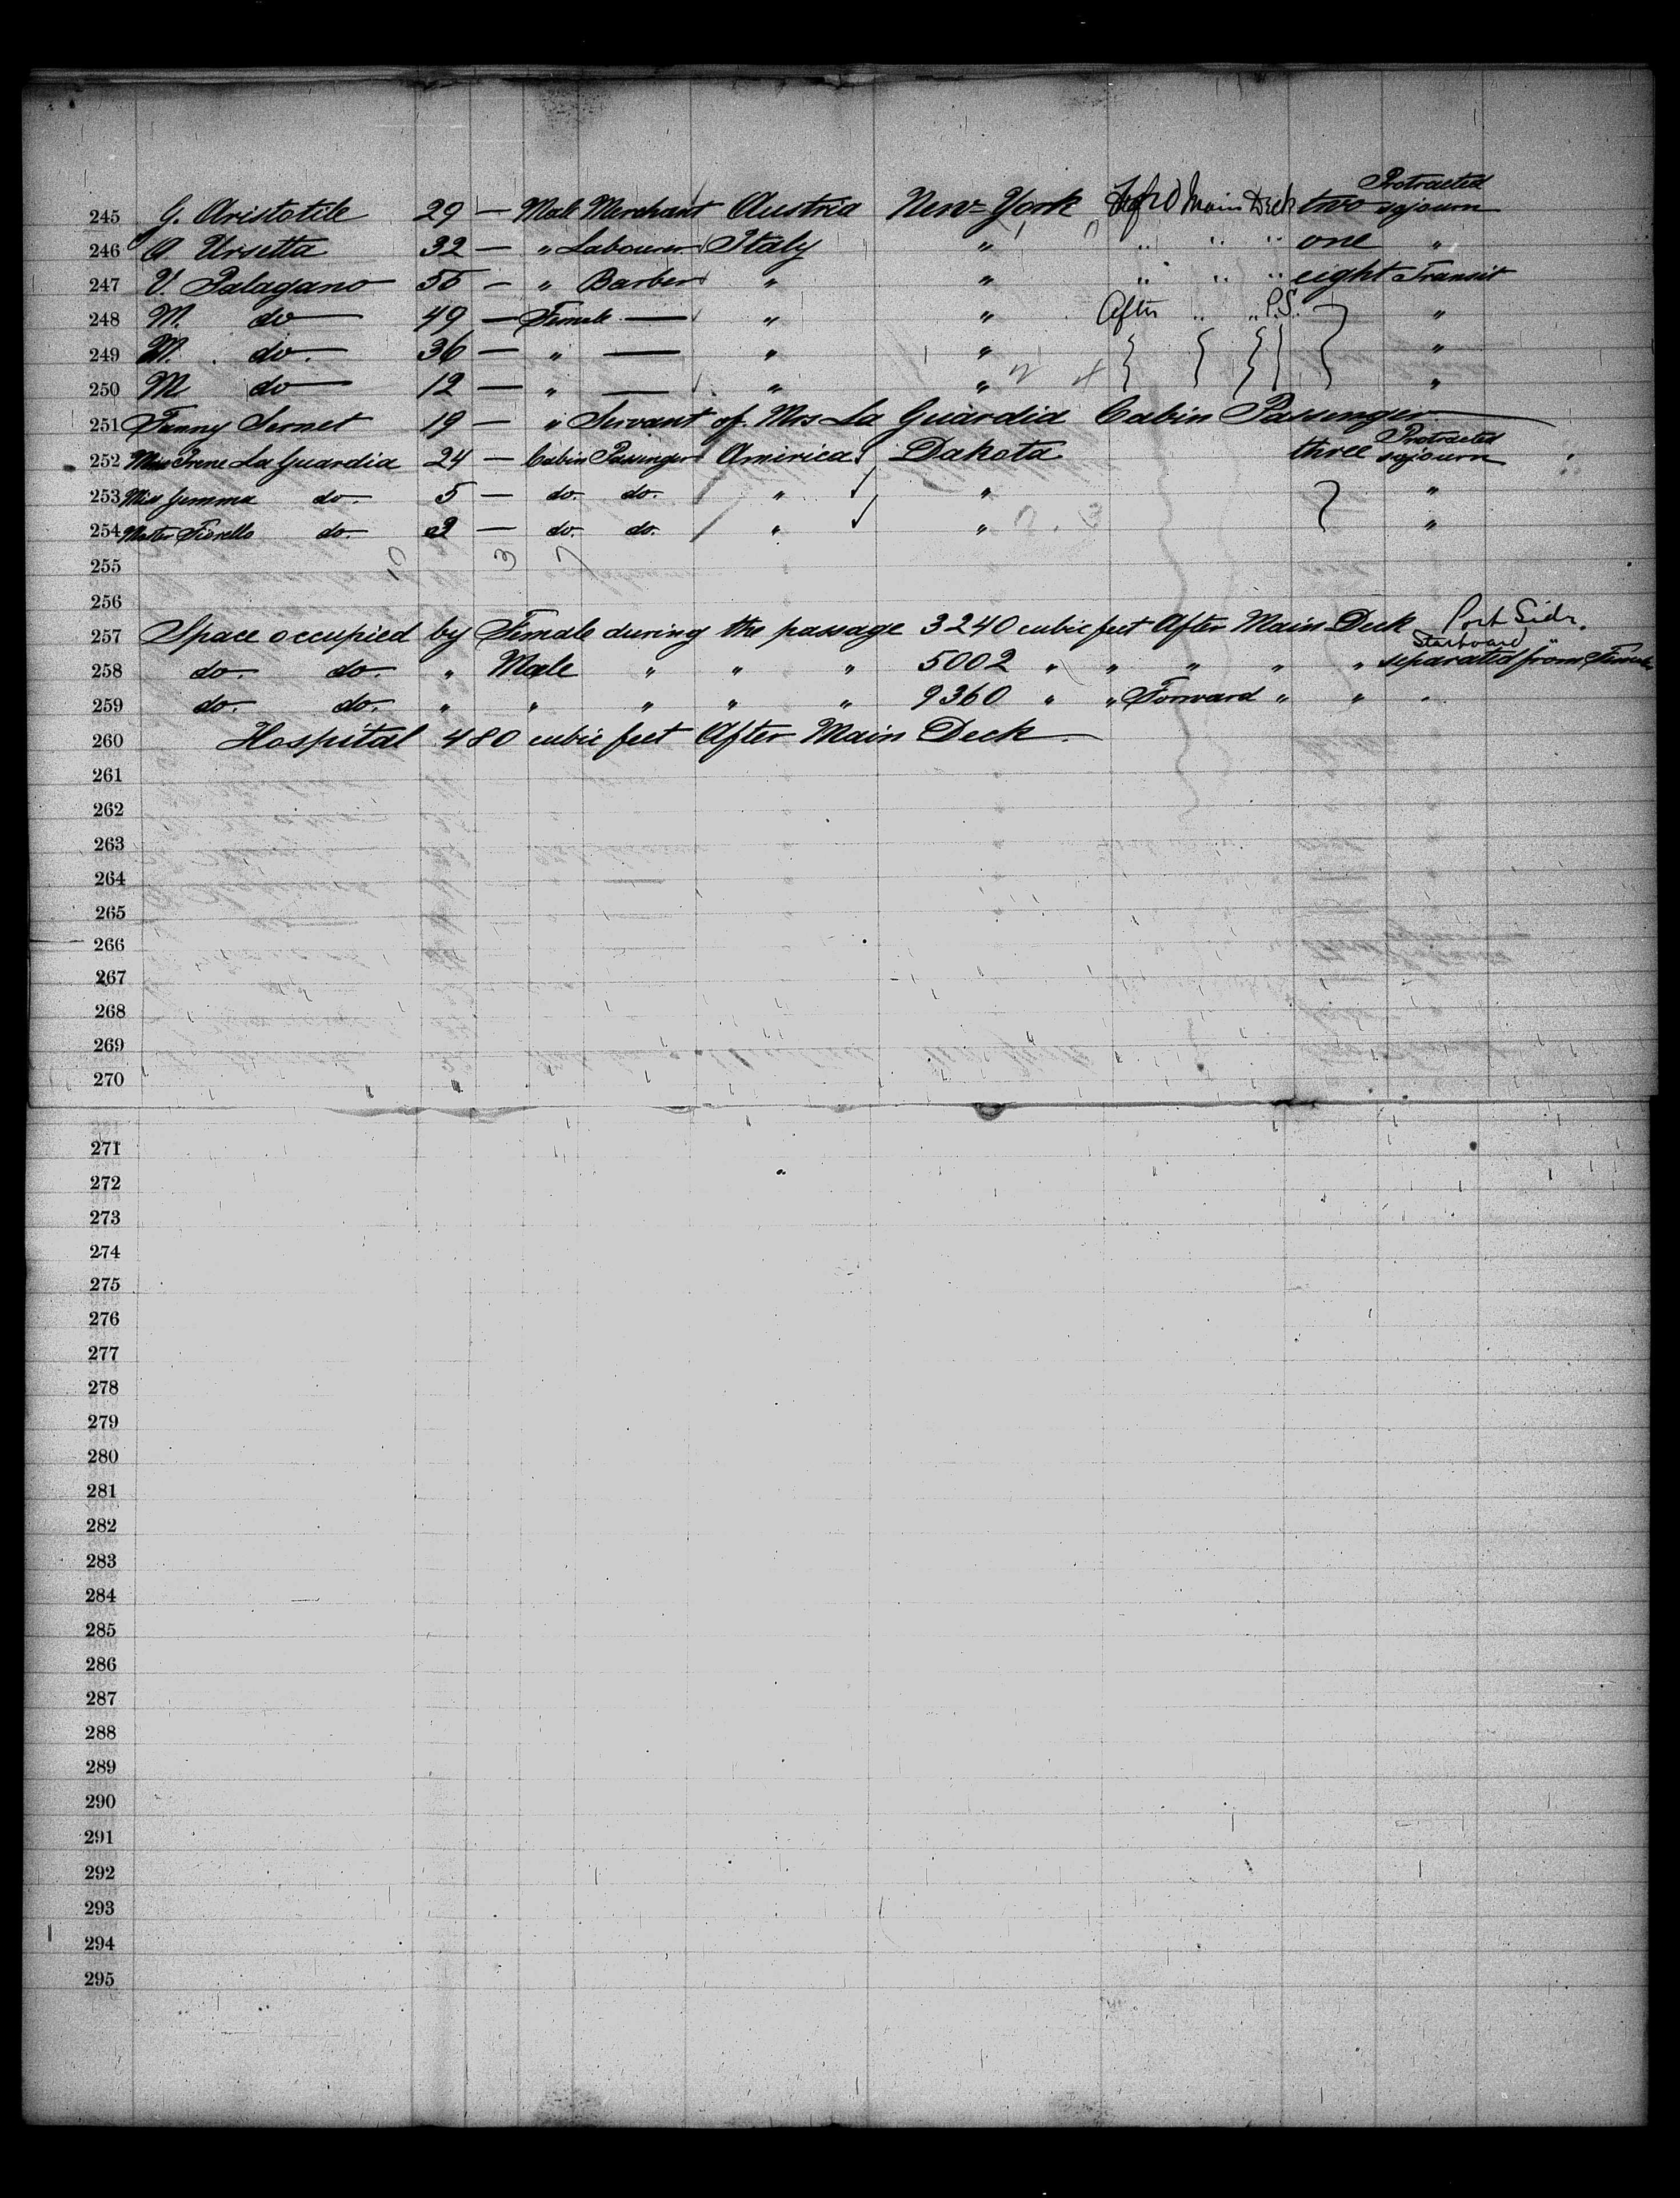 245 G. Aristotile 29 — Male Merchant Austria New-York Main Deck two Protracted sojourn
246 A. Ursetta 32 — " Labourer Italy " " " " one "
247 V. Palagano 55 — " Barber " " " " " eight Transit
248 M. do — 49 — Female — " " After " " P.S. "
249 M. do. — 36 — " — " " "
250 M. do — 12 — " — " " "
251 Fanny 19 — " Servant of Mrs La Guardia Cabin Passenger
252 Irene La Guardia 24 — Cabin Passenger America Dakota three Protracted sojourn
253 Miss Gemma do. 5 — do. do. " " "
254 Fiorello do. — do. do. " " 3 "
10 3 7
255
256
257 Space occupied by Female during the passage 3240 cubic feet After Main Deck Port Side.
258 do. do. " Male " " " 5002 " " " " " Starboard " separated from Female
259 do. do. " " " " " 9360 " " Forward " " "
260 Hospital 480 cubic feet After Main Deck
261
262
263
264
265
266
267
268
269
270
271
272
273
274
275
276
277
278
279
280
281
282
283
284
285
286
287
288
289
290
291
292
293
294
295